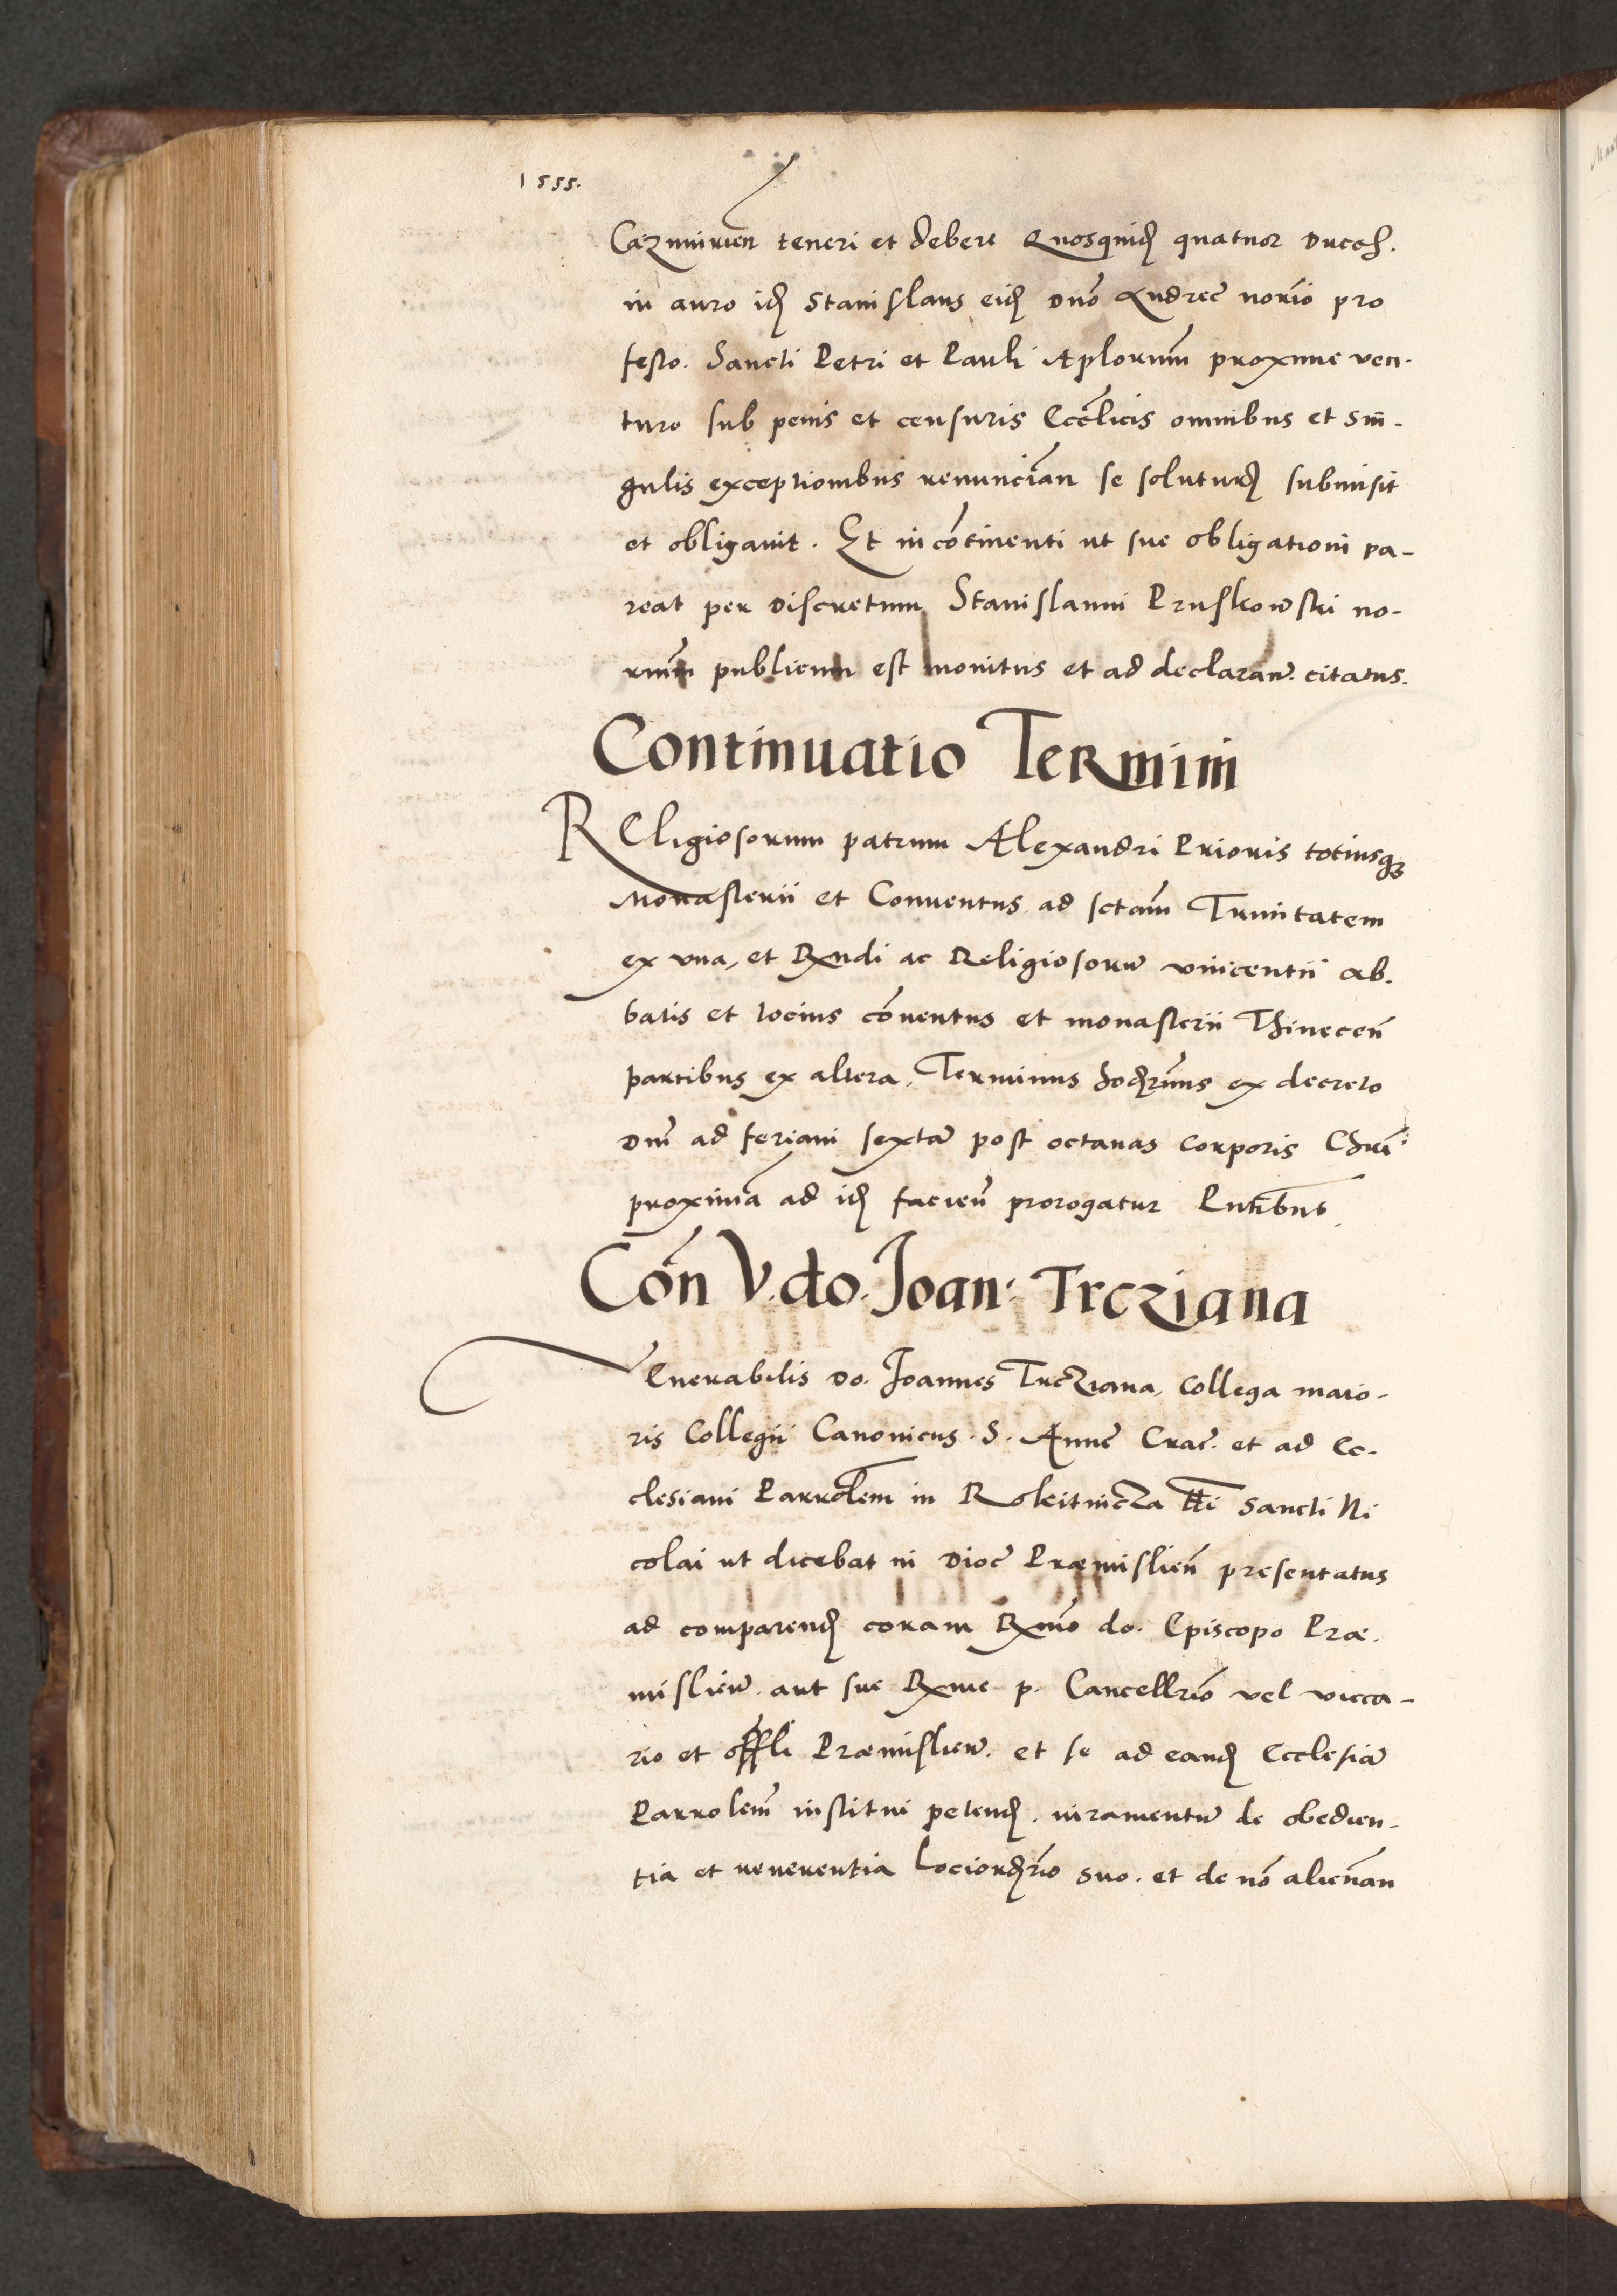 1555.
Cazmirien teneri et debere Quosquid quatuor ducal.
in auro id Stanislaus eid dno Andree norio pro
festo. Sancti Petri et Pauli Aplorum proxime ven-
turo sub penis et censuris Eccelicis omnibus et sin-
gulis exceptionibus renuncian se soluturd submisit
et obligavit. Et in cotinenti ut sue obligationi pa-
reat per discretum Stanislaum Pruskowski no-
rium publicum est monitus et ad declaran. citatus.
Continuatio Termini
Religiosorum patrum Alexandri Prioris totiusq
Monasterii et Conuentus ad sctam Trinitatem
ex vna, et Rndi ac Religiosoru vincentii ab-
batis et tocius couentus et monasterii Thinecen
partibus ex altera, Terminus hodrnus ex decreto
dni ad feriam sexta post octauas corporis Chri
proxima ad id facien prorogatur Pntibus
Con V. do. Joan: Trcziana
Venerabilis do. Joannes Trcziana, Collega maio-
ris Collegii Canonicus S. Anne Crac. et ad Ec-
clesiam Parrolem in Rokitnicza tti Sancti Ni
colai ut dicebat in dioc Præmislien presentatus
ad comparend coram Rmo do. Episcopo Præ-
mislien. aut sue Rme p. Cancellrio vel vicca-
rio et offli Præmislien. et se ad eand Ecclesia
Parrolem institui petend. iuramentu de obedien-
tia et reuerentia lociordrio suo. et de no alienan